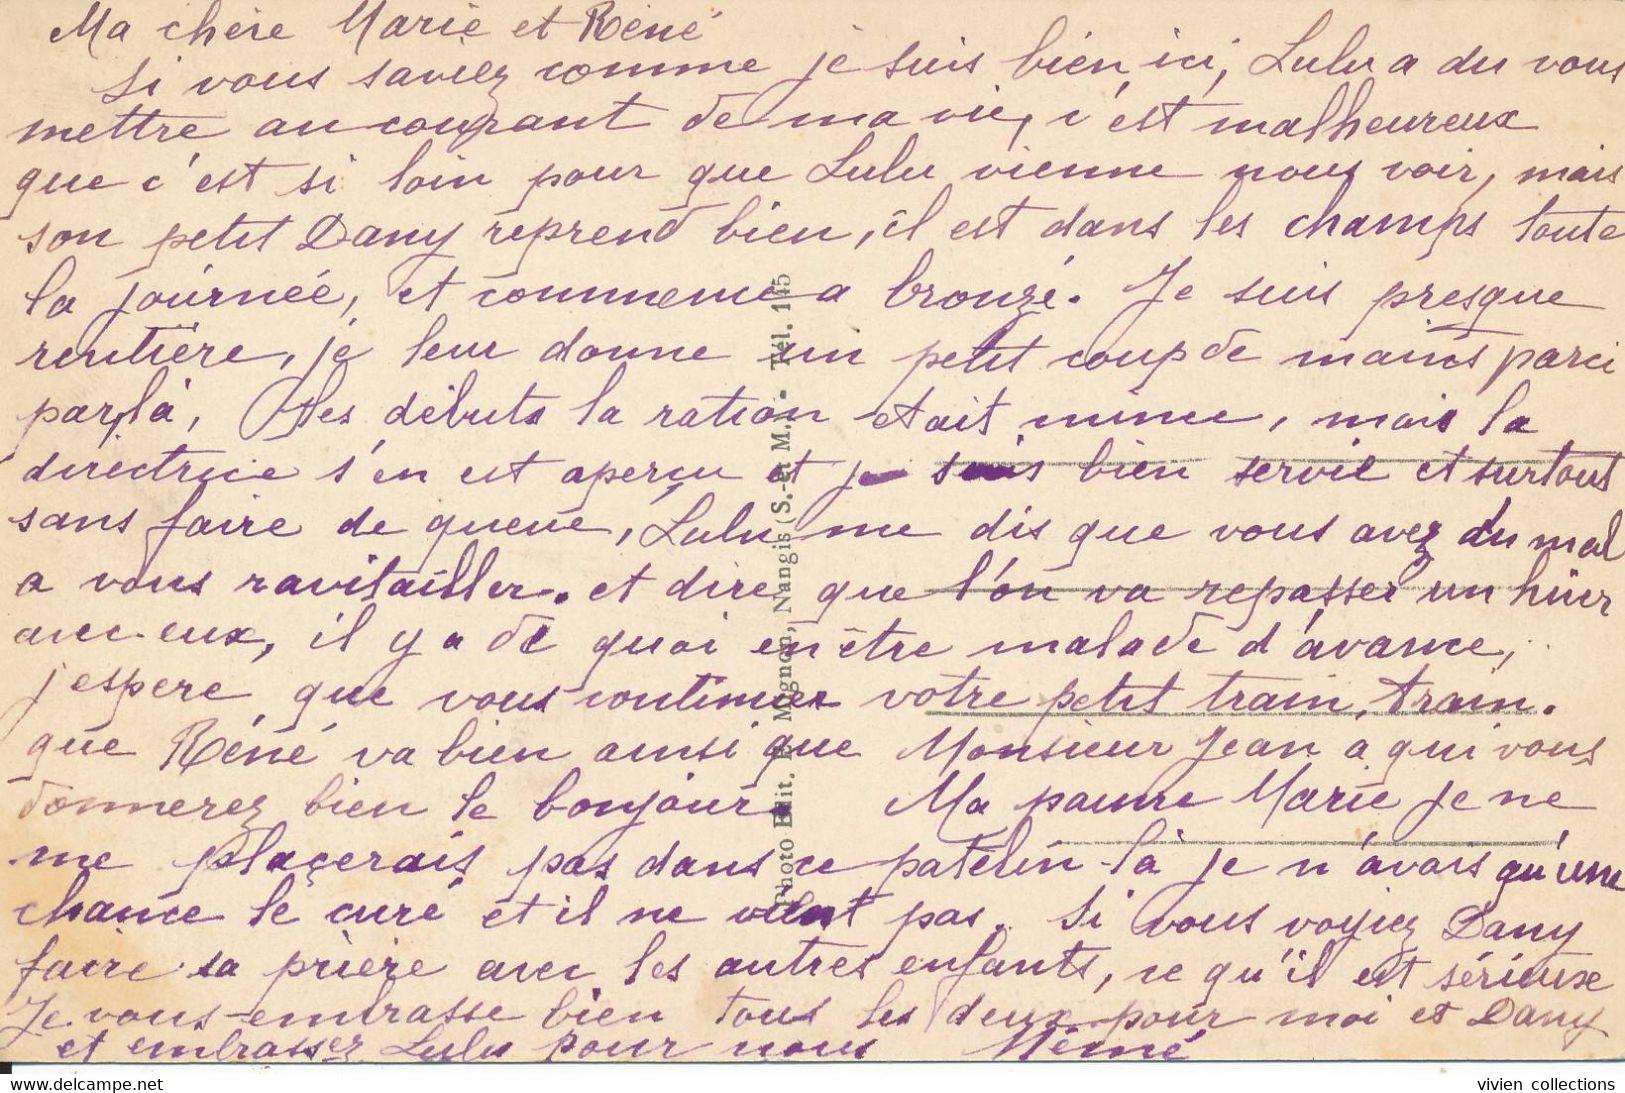 Ma chère Marie et Réné
Si vous saviez comme je suis bien ici, Lulu a du vous
mettre au courant de ma vie, c'est malheureux
que c'est si loin pour que Lulu vienne nous voir, mais
son petit Dany reprend bien, il est dans les champs toute
la journée, et commence a bronzé. Je suis presque
rentière, je leur donne un petit coup de mains parci
parlà, les débuts la ration etait mince, mais la
directrice s'en est aperçu et je suis bien servie et surtout
sans faire de queue, Lulu me dis que vous avez du mal
a vous ravitailler. et dire que l'on va repasser un hiver
avec eux, il y a de quoi en être malade d'avance,
j'espere que vous continuer votre petit train, train.
que Réné va bien ainsi que Monsieur Jean a qui vous
donnerez bien le bonjour. Ma pauvre Marie je ne
me plaçerais pas dans ce patelin là je n'avais qu'une
chance le curé et il ne vient pas. Si vous voyiez Dany
faire sa prière avec les autres enfants, ce qu'il est sérieux
Je vous embrasse bien tous les deux pour moi et Dany
et embrassez Lulu pour nous Mémé
Photo Edit. E. Mignon, Nangis (S.-et M.) - Tél. 145
www.delcampe.net
vivien collections